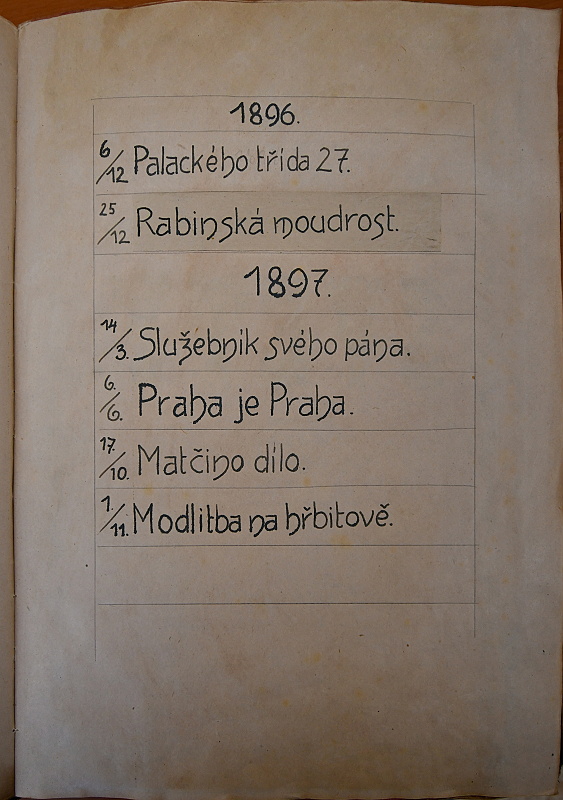 1896.
6/12 Palackého třída 27.
25/12 Rabinská moudrost.
1897.
14/3. Služebník svého pána.
6./6. Praha je Praha.
17./10. Matčino dílo.
1/11. Modlitba na hřbitově.